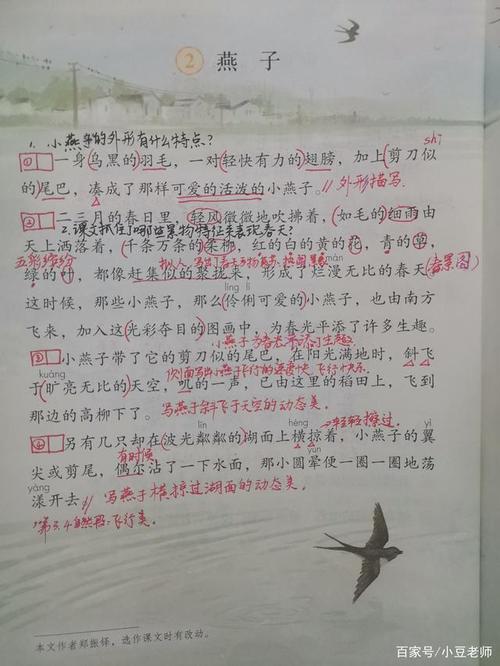 2 燕子
1. 小燕子的外形有什么特点？
shì
① 一身乌黑的羽毛，一对轻快有力的翅膀，加上剪刀似
的尾巴，凑成了那样可爱的活泼的小燕子。// 外形描写
② 二三月的春日里，轻风微微地吹拂着，如毛的细雨由
2. 课文抓住了哪些景物特征来表现春天？
天上洒落着，千条万条的柔柳，红的白的黄的花，青的草，
五彩缤纷
màn
绿的叶，都像赶集似的聚拢来，形成了烂漫无比的春天。
春景图
líng lì
这时候，那些小燕子，那么伶俐可爱的小燕子，也由南方
飞来，加入这光彩夺目的图画中，为春光平添了许多生趣。
小燕子为春光平添了生趣
kuàng
③ 小燕子带了它的剪刀似的尾巴，在阳光满地时，斜飞
于旷亮无比的天空，叽的一声，已由这里的稻田上，飞到
那边的高柳下了。写燕子斜飞于天空的动态美。
轻轻掠过。
lín
héng
yì
④ 另有几只却在波光粼粼的湖面上横掠着，小燕子的翼
有时候
yùn
尖或剪尾，偶尔沾了一下水面，那小圆晕便一圈一圈地荡
yàng
漾开去。// 写燕子横掠过湖面的动态美。
第3、4自然段：飞行美。
本文作者郑振铎，选作课文时有改动。
百家号/小豆老师